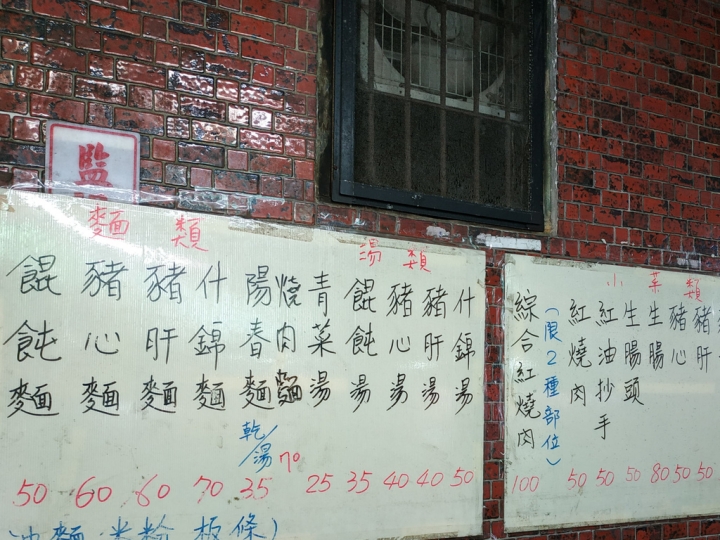 監
麵類
餛飩麵 50
豬心麵 60
豬肝麵 60
什錦麵 70
陽春麵 乾/湯 35
燒肉麵 70
湯類
青菜湯 25
餛飩湯 35
豬心湯 40
豬肝湯 40
什錦湯 50
油麵 米粉 板條)
小菜類
綜合紅燒肉 100
(限2種部位)
紅燒肉 50
紅油抄手 50
生腸頭 50
生腸 80
豬心 50
豬肝 50